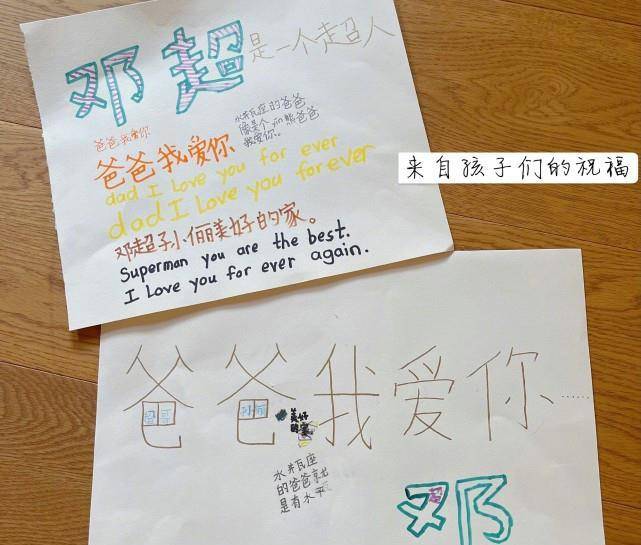 邓超是一个超人
爸爸我爱你
水井瓦座的爸爸
像是个yin熊爸爸
我爱你。
爸爸我爱你
dad I love you for ever
dad I love you forever
邓超孙俪美好的家。
Superman you are the best.
I Love you for ever again.
来自孩子们的祝福
爸爸我爱你……
美好
的家
水井瓦座
的爸爸就
是有水平
邓